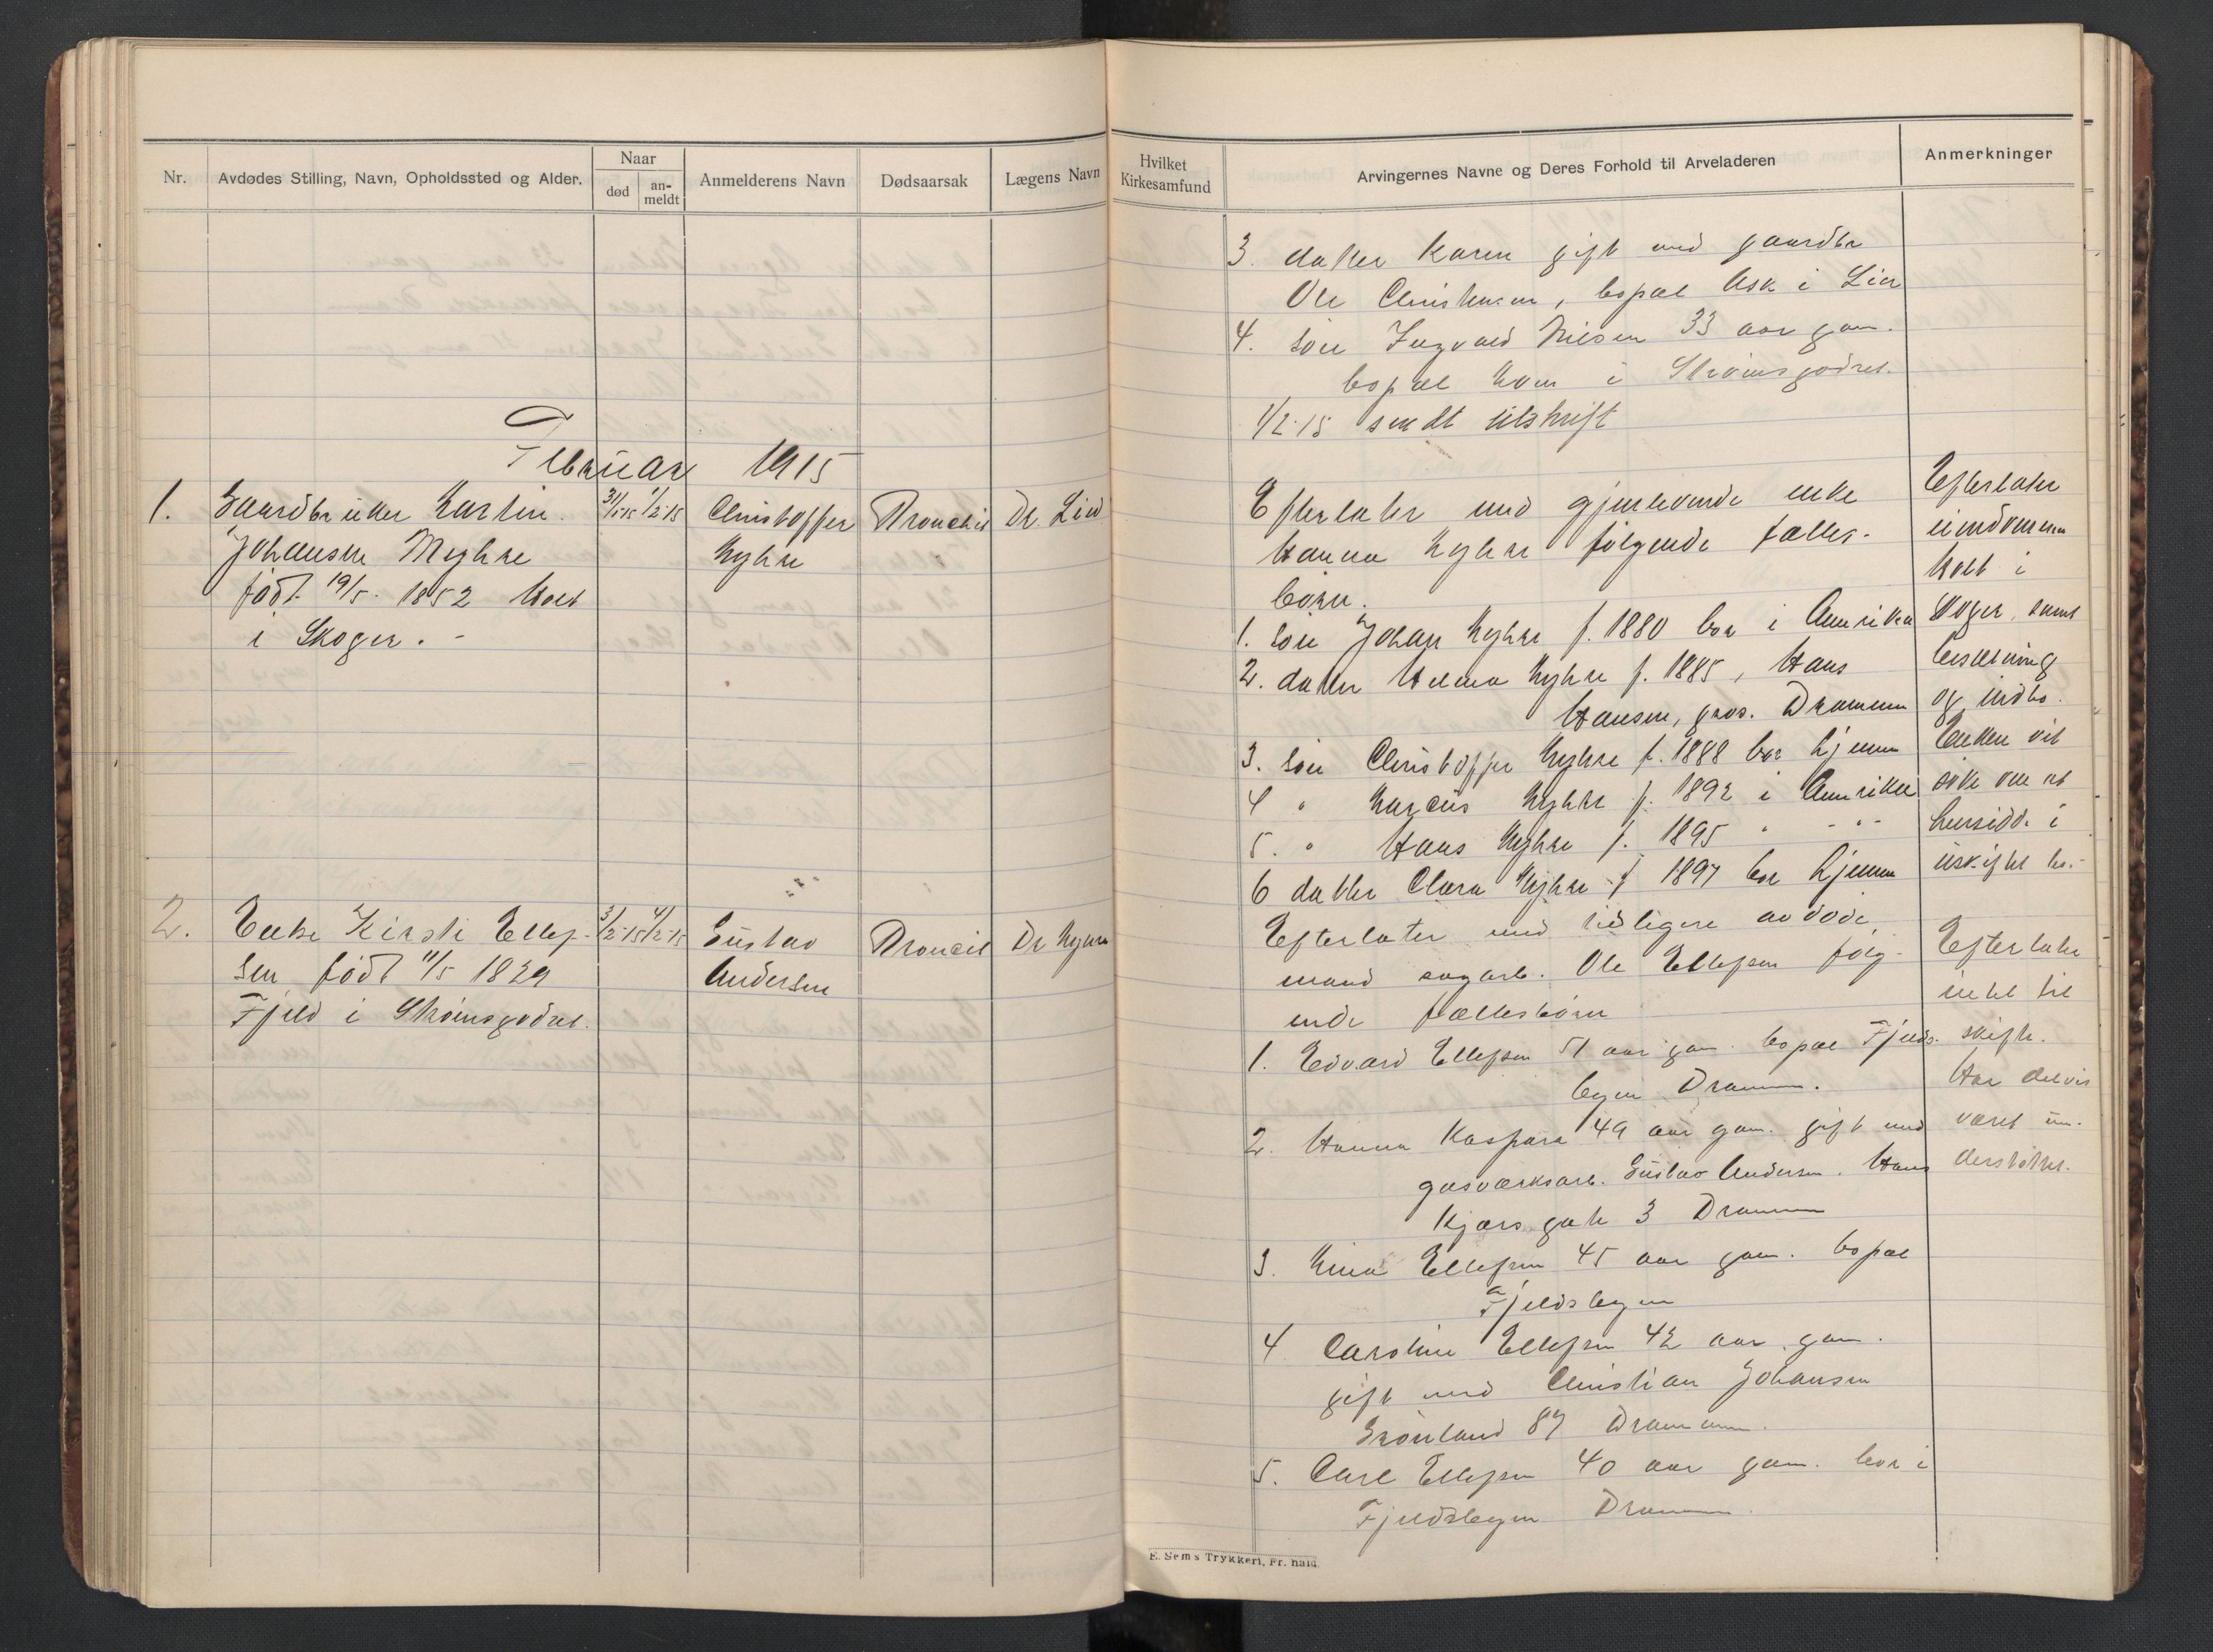 Nr.
Avdødes Stilling, Navn, Opholdssted og Alder.
Naar
død
an-
meldt
Anmelderens Navn
Dødsaarsak
Lægens Navn
Februar 1915
1. Gaardbruker Martin 31/1-15 1/2-15 Christoffer Dr. Lied
Johansen Myhre Myhre
født 19/5. 1852 Holt
i Skoger. -
2. Enke Kirsti Ellef- 3/2-15 4/2-15 Gustav Dr
sen født 11/5 1829 Andersen
Fjeld i Strømsgodset.
Hvilket
Kirkesamfund
Arvingernes Navne og Deres Forhold til Arveladeren
Anmerkninger
3. datter Karen gift med gaardbr
Ole Christensen, bopæl Ask i Lier
4. søn Ingvald Nilsen 33 aar gam.
bopæl i Strømsgodset.
1/2-15 sendt utskrift
Efterlater med gjenlevende enke
Hanna Myhre følgende fælles-
børn.
1. søn Johan Myhre f. 1880 bor i Amerika
2. datter Helma Myhre f. 1885, Hans
Hansen, Drammen
3. søn Christoffer Myhre f. 1888 bor hjemme
4 " Marius Myhre f. 1892 i Amerika
5. " Hans Myhre f. 1895 " - " -
6 datter Clara Myhre f 1897 bor hjemme
Efterlater
eiendommen
Holt i
Skoger, samt
besætning
og indbo.
Enken vil
søke om at
hensidde i
uskiftet bo.-
Efterlater med tidligere avdøde
mand sagarb. Ole Ellefsen følg-
ende fællesbørn
1. Edvard Ellefsen 51 aar gam. bopæl Fjelds-
byen Drammen.
2. Hanna Kaspara 49 aar gam. gift med
gasværksarb. Gustav Andersen. Hans
Kjærs gate 3 Drammen
3. Ellefsen 45 aar gam. bopæl
Fjeldsbyen
4 Caroline Ellefsen 42 aar gam.
gift med Christian Johansen
Grønland 87 Drammen.
5. Carl Ellefsen 40 aar gam. bor i
Fjeldsbyen Drammen.
Efterlater
intet til
skifte.
Har delvis
været un-
derstøttet.
E. Sem's Trykkeri, Fr.hald.